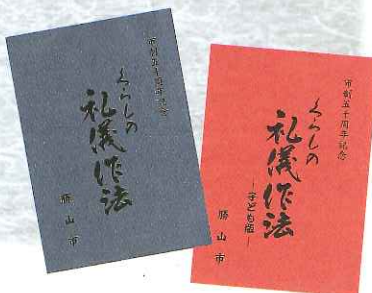 市制五十周年記念
くらしの
礼儀作法
勝山市
市制五十周年記念
くらしの
礼儀作法
―子ども版―
勝山市